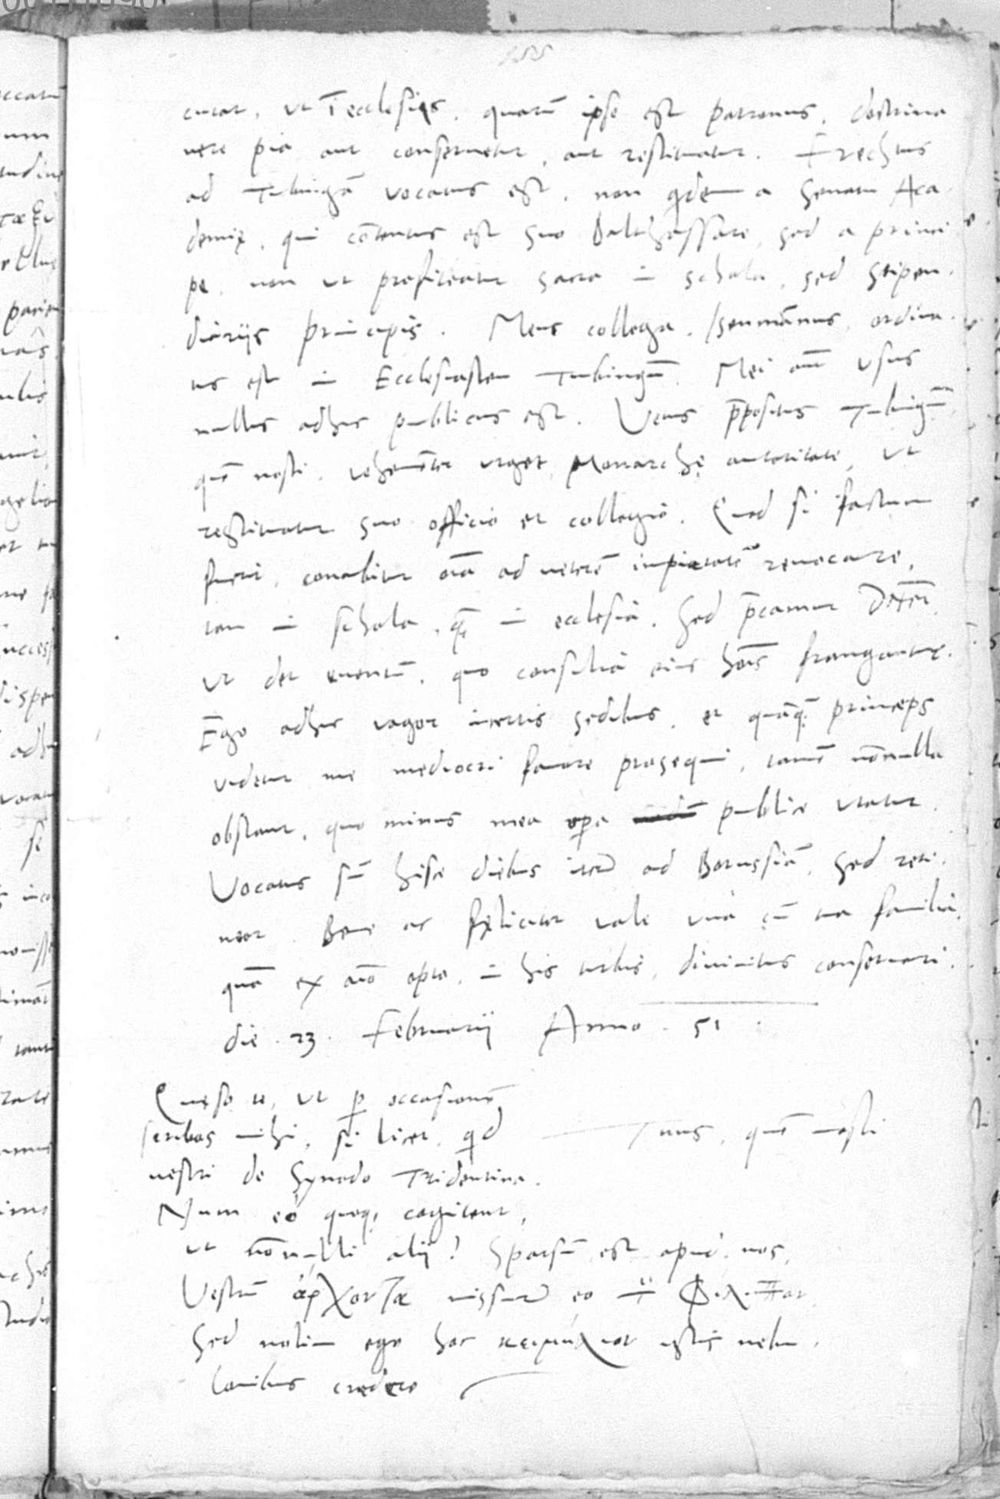 curat, ut ī ecclesiȩs, quarū ipse est patronus, doctrina
vere pia aut conservetur, aut restituatur. Frechtus
ad Tubingā vocatus est, non qidem a Senatu Aca
demię, qui cōtentus est suo Balthassare, sed a princi
pe, non ut profiteatur sacra in schola, sed stipen
diariis principis. Meus collega, Isenmānus, ordina
tus est in Ecclesiasten Tubingēn. Mei aūt usus
nullus adhuc publicus est. Vetus p̄positus Tubingēn
quē nosti, vehemēter urget Monarchę autoritate, ut
restituatur suo officio et collegio. Quod si factum
fuerit, conabitur oīa ad veterē impietatē revocare,
tam in schola, q̄ in ecclesia. Sed p̄camur
ut det eventū, quo consilia eius hōīs frangantur.
Ego adhuc vagor incertis sedibus, et quāq̄ princeps
videtur me mediocri favore prosequi, tamē nōnulla
obstant, quo minus mea opa publice utatur.
Vocatus sū hisce diebus iterū ad Borussiā, sed reti
neor. Bene ac fęliciter vale una cū tua familia,
quā ex aīo opto, in his turbis, divinitus conservari.
die 23. Februarii Anno . 51 .
Quęso te, ut p occasionē
scribas mihi, si licet, qid
Tuus, quē nosti
vestri de Synodo Tridentina.
Num eò quoq; cogitent,
ut nōnulli alii? Sparsū est apud nos,
Vestrū ἄρχοντα missurū eo
Sed nolim ego hoc istis nebu
lonibus credere